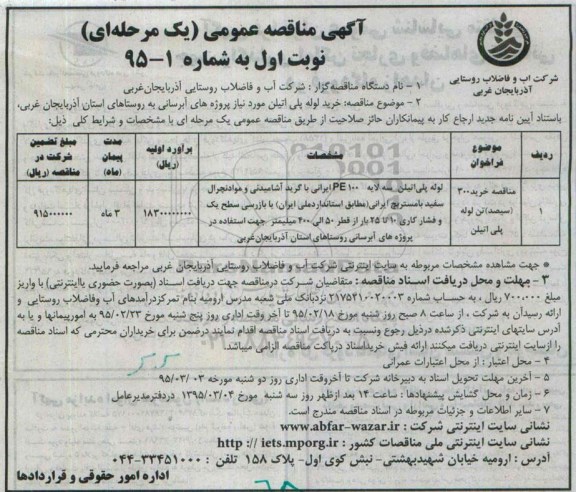 آگهی مناقصه عمومی (یک مرحله‌ای)
نوبت اول به شماره ۱-۹۵
شرکت آب و فاضلاب روستایی
آذربایجان غربی
۱ - نام دستگاه مناقصه‌گزار : شرکت آب و فاضلاب روستایی آذربایجان‌غربی
۲ - موضوع مناقصه: خرید لوله پلی اتیلن مورد نیاز پروژه های آبرسانی به روستاهای استان آذربایجان غربی،
باستناد آیین نامه جدید ارجاع کار به پیمانکاران حائز صلاحیت از طریق مناقصه عمومی یک مرحله ای با مشخصات و شرایط کلی ذیل:
ردیف موضوع فراخوان مشخصات برآورد اولیه (ریال) مدت پیمان (ماه) مبلغ تضمین شرکت در مناقصه (ریال)
۱ مناقصه خرید۳۰۰ (سیصد)تن لوله پلی اتیلن
لوله پلی‌اتیلن سه لایه PE۱۰۰ ایرانی با گرید آشامیدنی و موادنچرال
سفید بامستربچ ایرانی(مطابق استانداردملی ایران) با بازرسی سطح یک
و فشار کاری ۱۰ تا ۲۵ بار از قطر ۵۰ الی ۴۰۰ میلیمتر جهت استفاده در
پروژه های آبرسانی روستاهای استان آذربایجان‌غربی
۱۸۳۰۰۰۰۰۰۰۰ ۳ ماه ۹۱۵۰۰۰۰۰۰
جهت مشاهده مشخصات مربوطه به سایت اینترنتی شرکت آب و فاضلاب روستایی آذربایجان غربی مراجعه فرمایید.
۳ - مهلت و محل دریافت اسناد مناقصه : متقاضیان شرکت درمناقصه جهت دریافت اسناد (بصورت حضوری یااینترنتی) با واریز
مبلغ ۷۰۰.۰۰۰ ریال ، به حساب شماره ۲۱۷۵۲۱۰۰۲۰۰۰۳ نزدبانک ملی شعبه مدرس ارومیه بنام تمرکزدرآمدهای آب وفاضلاب روستایی و
ارائه رسیدآن به شرکت ، از ساعت ۸ صبح روز شنبه مورخ ۹۵/۰۲/۱۸ تا آخروقت اداری روز پنج شنبه مورخ ۹۵/۰۲/۲۳ به امورپیمانها و یا به
آدرس سایتهای اینترنتی ذکرشده درذیل رجوع ونسبت به دریافت اسناد مناقصه اقدام نمایند درضمن برای خریداران محترمی که اسناد مناقصه
را ازسایت اینترنتی دریافت میکنند ارائه فیش خریداسناد درپاکت مناقصه الزامی میباشد.
۴ - محل اعتبار : از محل اعتبارات عمرانی
۵ - آخرین مهلت تحویل اسناد به دبیرخانه شرکت تا آخروقت اداری روز دو شنبه مورخه ۹۵/۰۳/۰۳
۶ - زمان و محل گشایش پیشنهادها : ساعت ۱۴ بعد ازظهر روز سه شنبه مورخ ۱۳۹۵/۰۳/۰۴ دردفترمدیرعامل
۷ - سایر اطلاعات و جزئیات مربوطه در اسناد مناقصه مندرج است.
نشانی سایت اینترنتی شرکت : www.abfar-wazar.ir
نشانی سایت اینترنتی ملی مناقصات کشور : http :// iets.mporg.ir
آدرس : ارومیه خیابان شهیدبهشتی- نبش کوی اول- پلاک ۱۵۸ تلفن : ۳۳۴۵۱۰۰۰-۰۴۴
اداره امور حقوقی و قراردادها